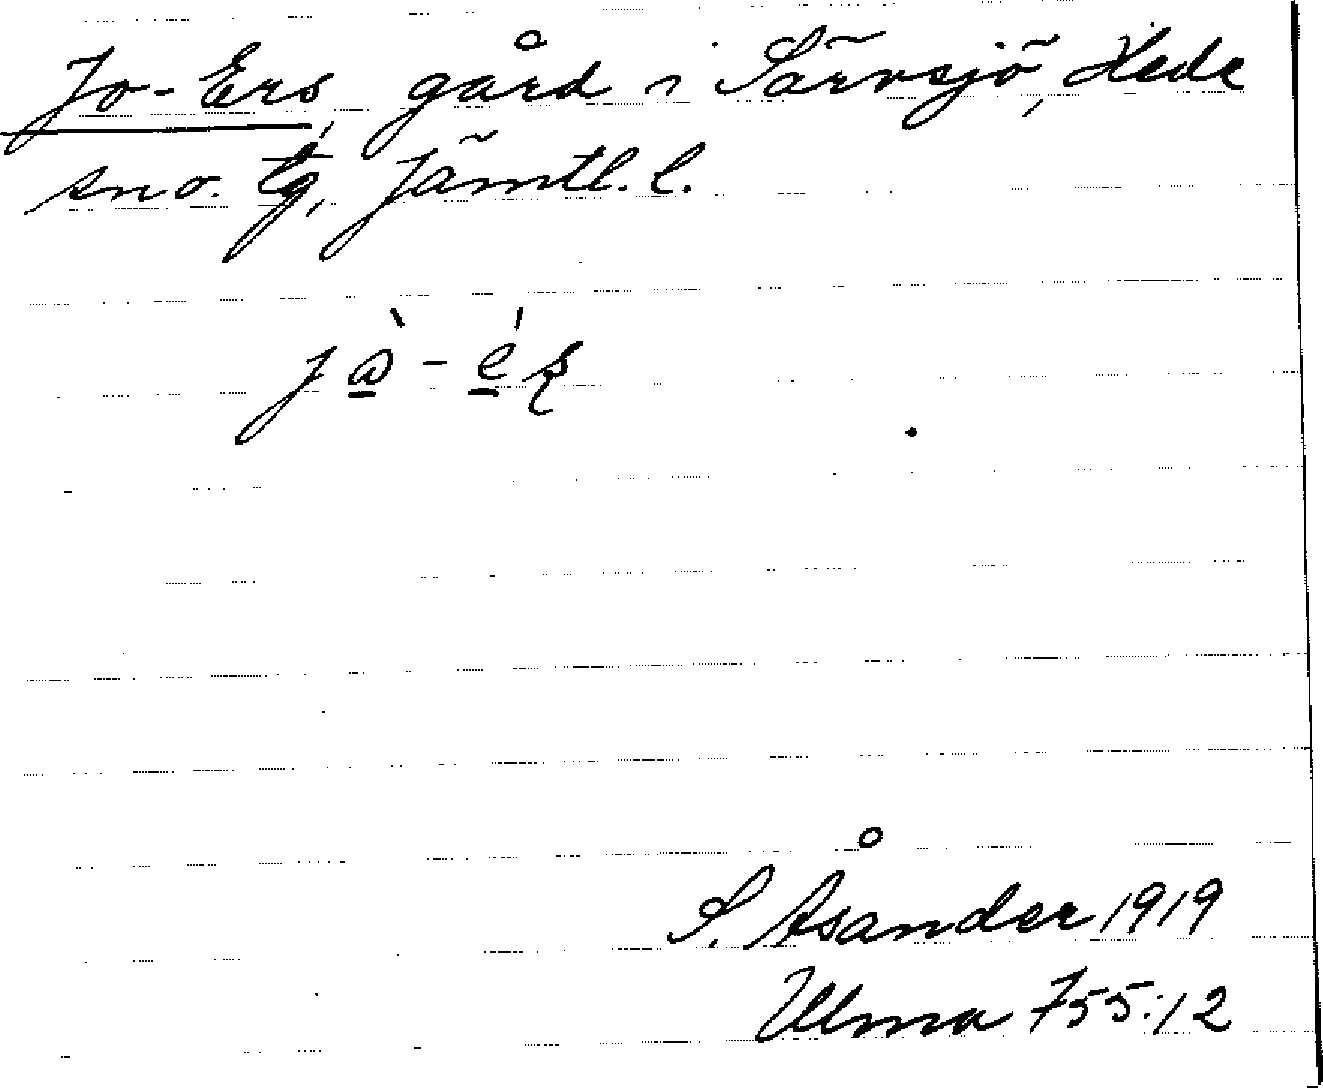 Jo-Ers, gård i Särvsjö, Hede
sn o. tg, Jämtl. l.
S. Åsander 1919
Ulma 755:12